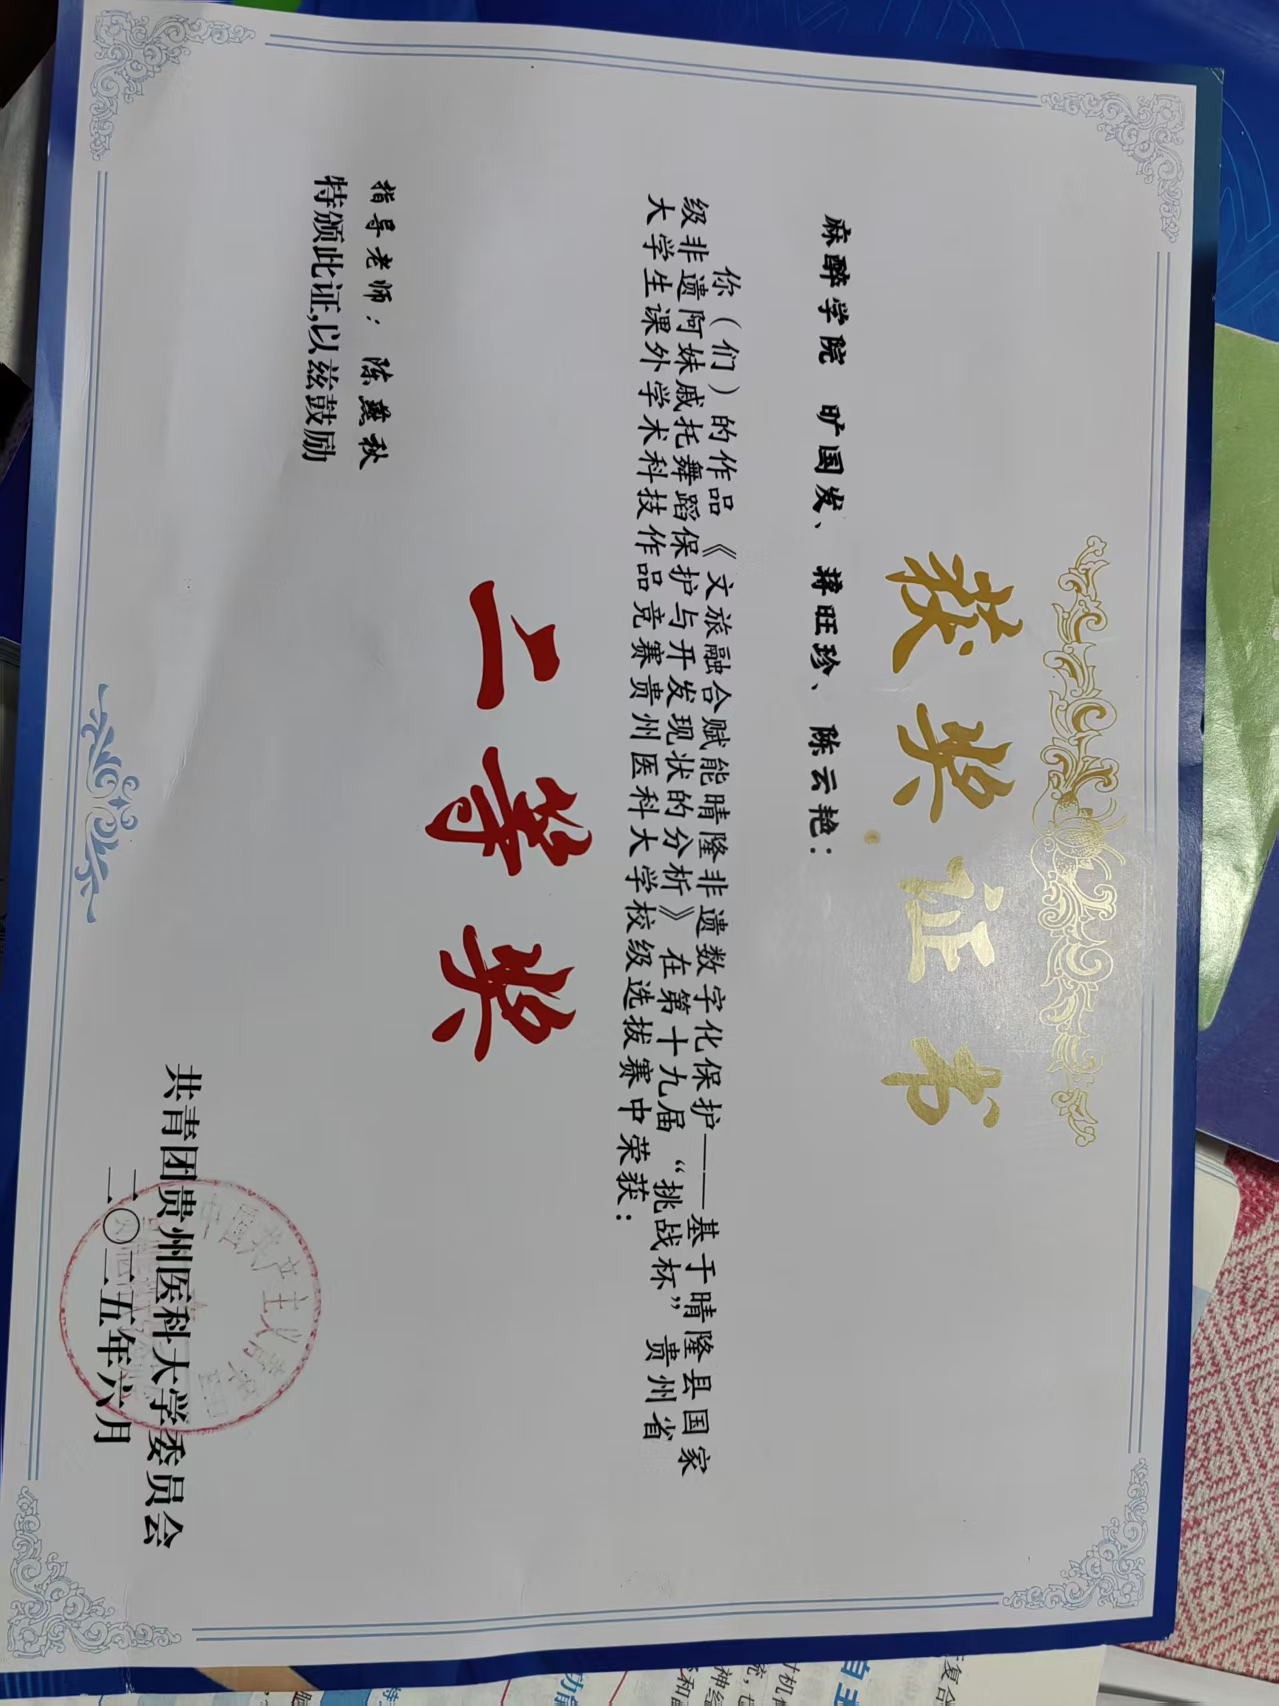 获奖证书
麻醉学院 旷国发、蒋旺珍、陈云艳：
你（们）的作品《文旅融合赋能晴隆非遗数字化保护——基于晴隆县国家
级非遗阿妹戚托舞蹈保护与开发现状的分析》在第十九届“挑战杯”贵州省
大学生课外学术科技作品竞赛贵州医科大学校级选拔赛中荣获：
二等奖
指导老师：陈燕秋
特颁此证，以兹鼓励
共青团贵州医科大学委员会
二〇二五年六月
中国共产主义青年团